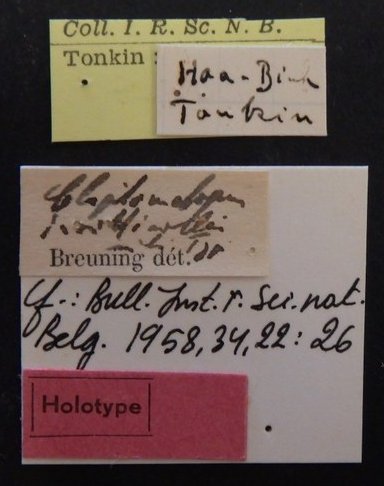 Coll. I. R. Sc. N. B.
Tonkin :
Hoa-Binh
Tonkin
Breuning dét.
cf.: Bull. Inst. r. Sci. nat.
Belg. 1958, 34, 22: 26
Holotype